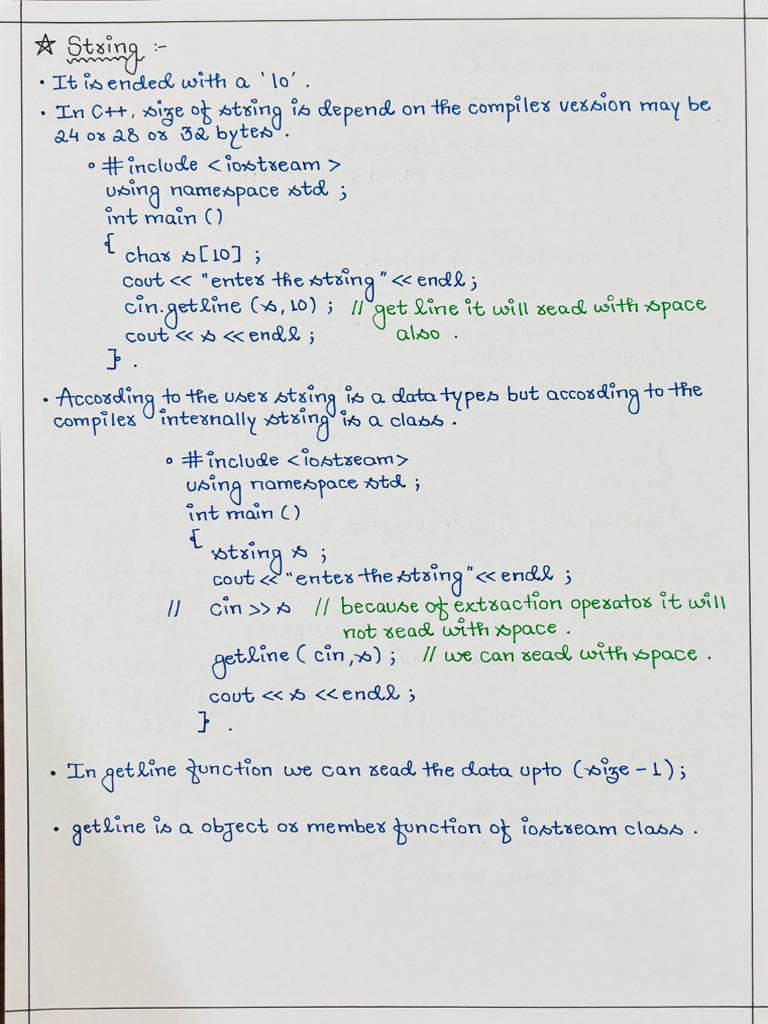 ☆ String :-
• It is ended with a '\0'.
• In C++, size of string is depend on the compiler version may be
24 or 28 or 32 bytes.
∘ #include <iostream>
using namespace std ;
int main ()
{
char s[10] ;
cout << "enter the string" << endl ;
cin.getline (s,10) ; // get line it will read with space
also .
cout << s << endl ;
} .
• According to the user string is a data types but according to the
compiler internally string is a class .
∘ #include <iostream>
using namespace std ;
int main ()
{
string s ;
cout << "enter the string" << endl ;
// cin >> s // because of extraction operator it will
not read with space .
getline ( cin,s) ; // we can read with space .
cout << s << endl ;
} .
• In getline function we can read the data upto (size - 1) ;
• getline is a object or member function of iostream class .